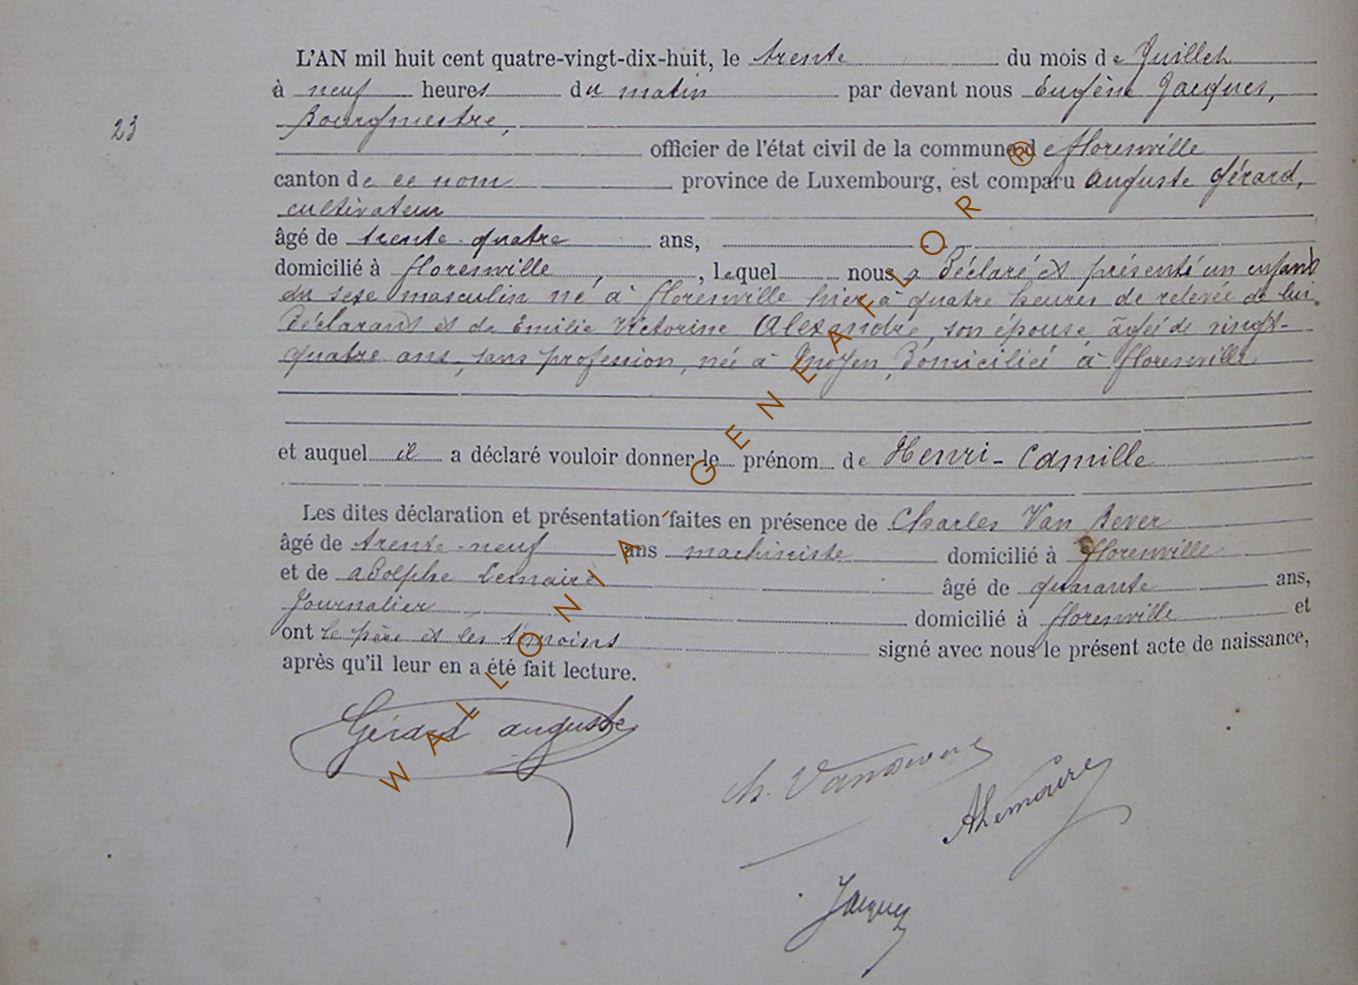 L'AN mil huit cent quatre-vingt-dix-huit, le trente du mois de Juillet
à neuf heures du matin par devant nous Eugène Jacques,
Bourgmestre,
23
officier de l'état civil de la commune de florenville
canton de ce nom province de Luxembourg, est comparu Auguste Gérard,
cultivateur
âgé de trente-quatre ans,
domicilié à florenville, lequel nous a déclaré et présenté un enfant
du sexe masculin né à florenville hier à quatre heures de relevée de lui
Déclarant et de Emilie Victorine Alexandre, son épouse, âgée de vingt-
quatre ans, sans profession, née à Moyen, Domiciliée à florenville
et auquel il a déclaré vouloir donner le prénom de Henri-Camille
Les dites déclaration et présentation faites en présence de Charles Van Bever
âgé de trente-neuf ans machiniste domicilié à florenville
et de adolphe Lemaire âgé de quarante ans,
Journalier domicilié à florenville et
ont le père et les témoins signé avec nous le présent acte de naissance,
après qu'il leur en a été fait lecture.
Gérard auguste
ch. Vanbever
ALemaire
Jacques
WALLONIA GENEAFLOR ®